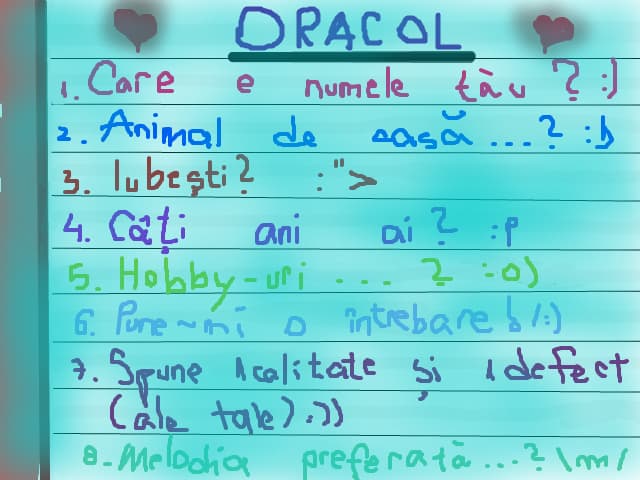 ORACOL
1. Care e numele tău ? :)
2. Animal de casă ... ? :D
3. Iubești? :">
4. Câți ani ai ? :p
5. Hobby-uri ... ? :o)
6. Pune-mi o întrebare /:)
7. Spune 1 calitate și 1 defect
(ale tale) :))
8. Melodia preferată ...? \m/